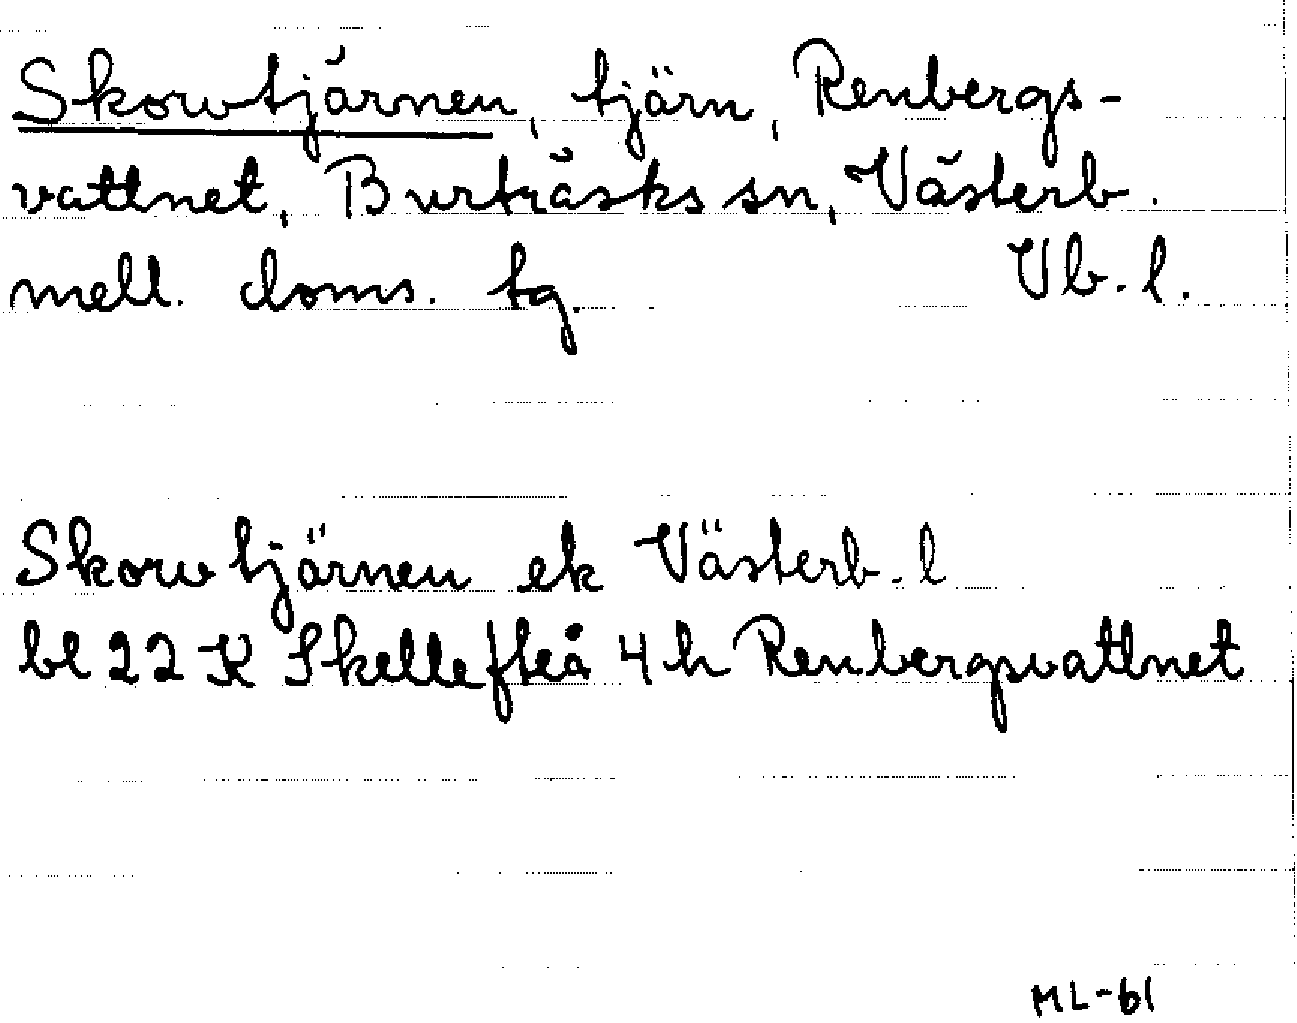 Skorvtjärnen, tjärn, Renbergs-
vattnet, Burträsks sn, Västerb.
mell. doms. tg. Vb. l.
Skorvtjärnen ek Västerb. l
bl 22 K Skellefteå 4 h Renbergsvattnet
ML-61